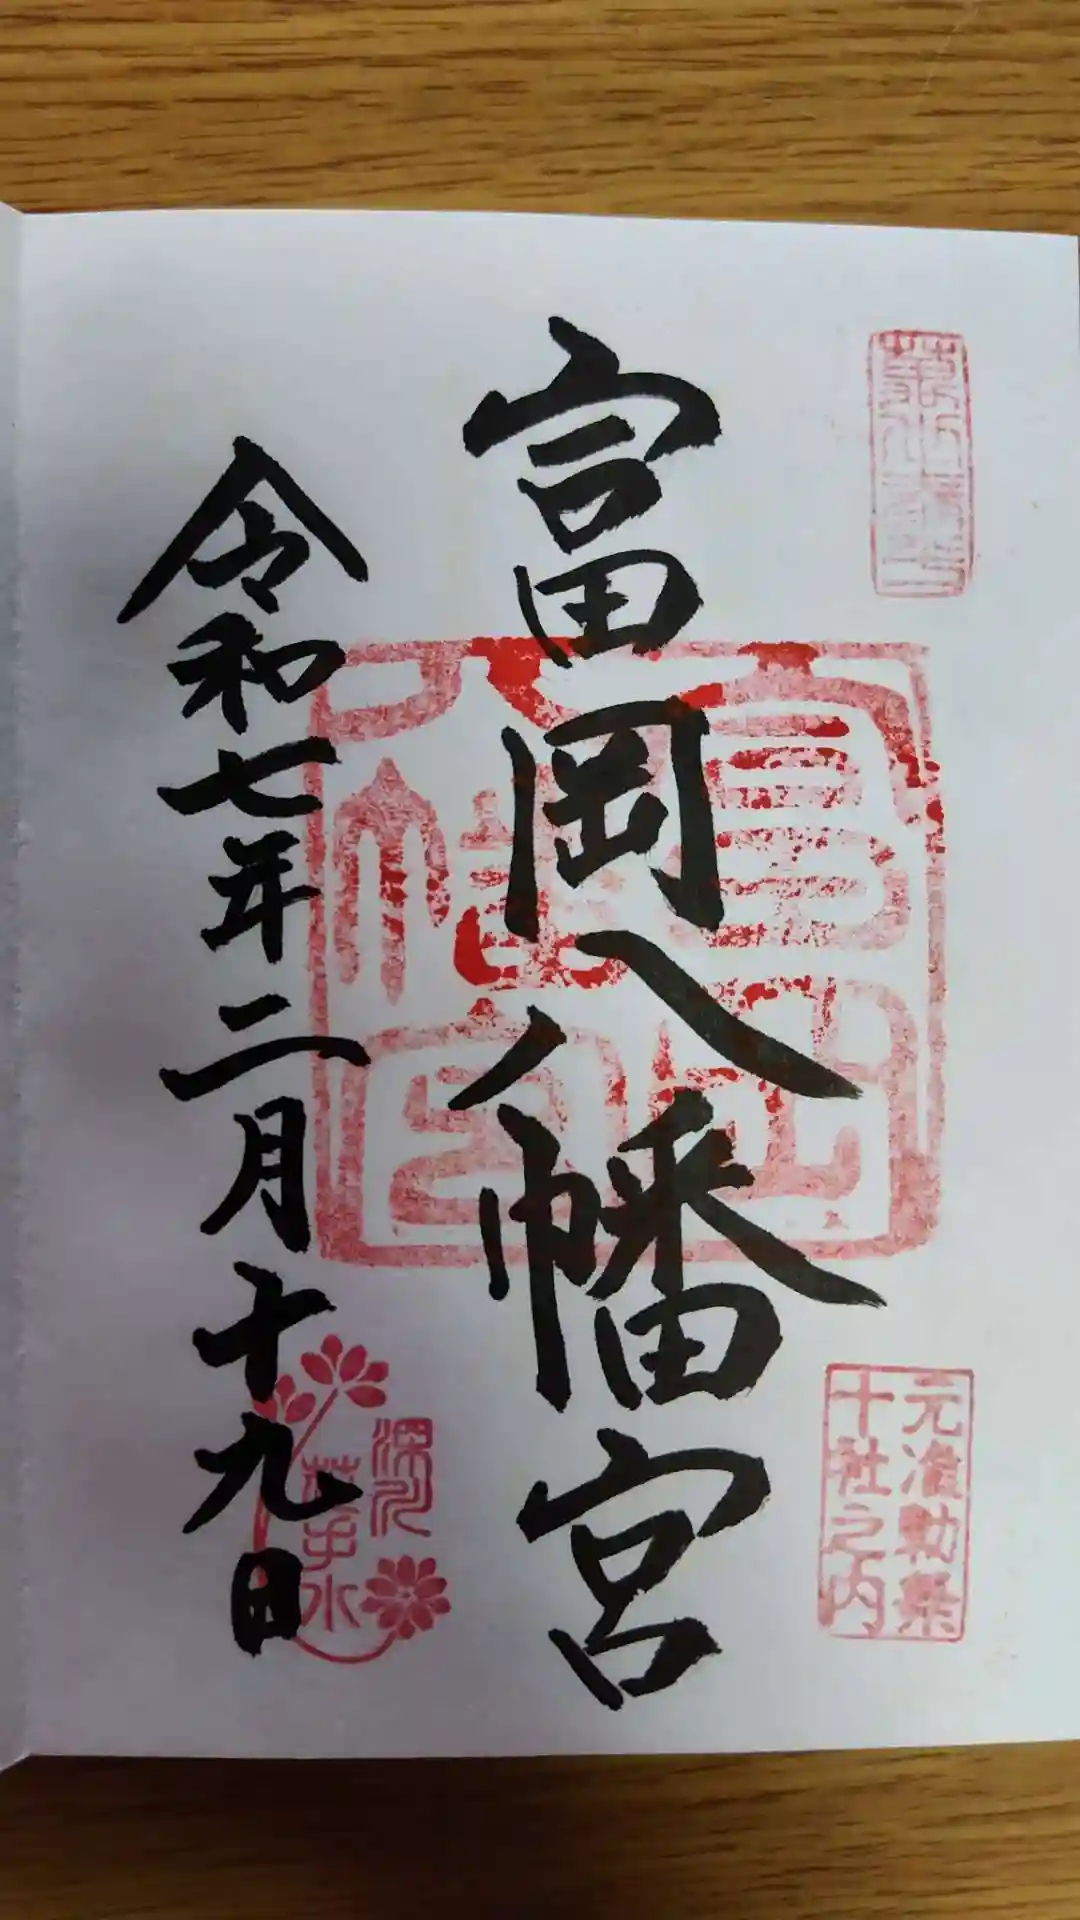 富岡八幡宮
元准勅祭
十社之内
令和七年二月十九日
深川